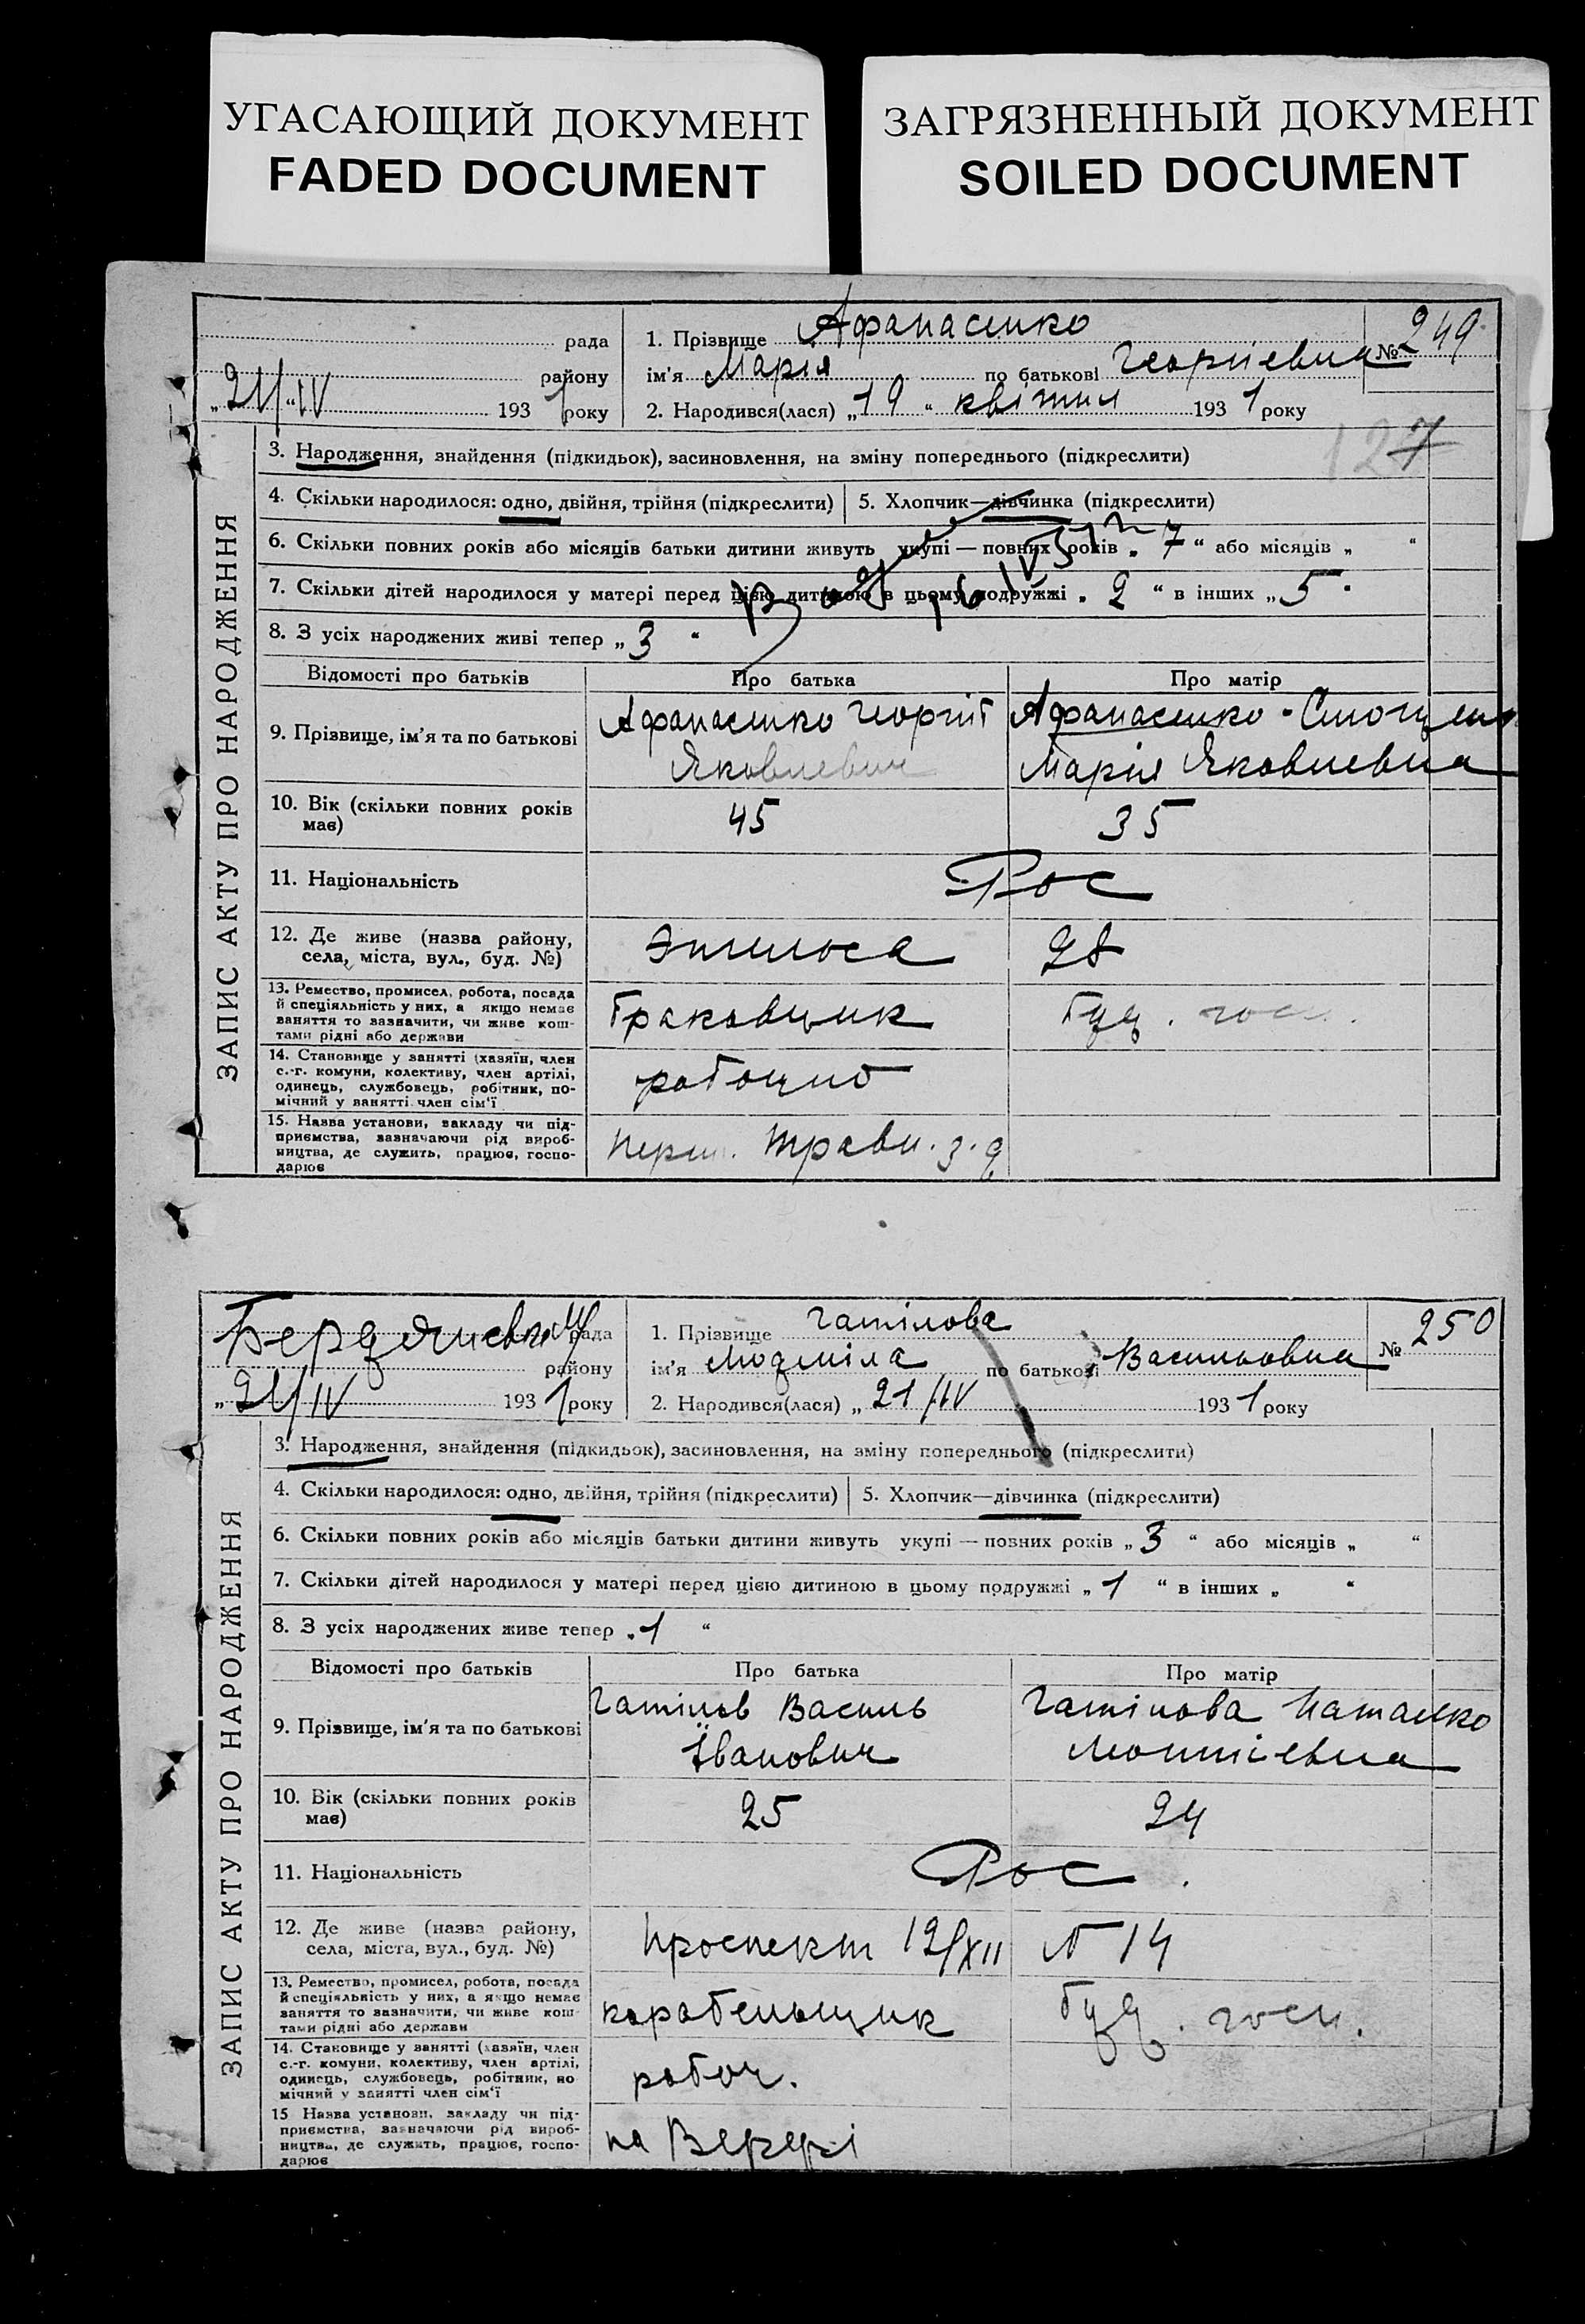 УГАСАЮЩИЙ ДОКУМЕНТ
FADED DOCUMENT
ЗАГРЯЗНЕННЫЙ ДОКУМЕНТ
SOILED DOCUMENT
рада
району
„21/IV 1931 року
1. Прізвище Афанасенко
ім'я Марія по батькові Георгіевна
2. Народився(лася) „19“ квітня 1931 року
№ 249
127
ЗАПИС АКТУ ПРО НАРОДЖЕННЯ
3. Народження, знайдення (підкидьок), засиновлення, на зміну попереднього (підкреслити)
4. Скільки народилося: одно, двійня, трійня (підкреслити) 5. Хлопчик—дівчинка (підкреслити)
6. Скільки повних років або місяців батьки дитини живуть укупі — повних років „7“ або місяців „ “
7. Скільки дітей народилося у матері перед цією дитиною в цьому подружжі „2“ в інших „5“
8. З усіх народжених живі тепер „3“
Відомості про батьків Про батька Про матір
9. Прізвище, ім'я та по батькові
Афанасенко Георгій
Яковлевич
Афанасенко -
Марія Яковлевна
10. Вік (скільки повних років має) 45 35
11. Національність Рос
12. Де живе (назва району, села, міста, вул., буд. №) 28
13. Ремество, промисел, робота, посада й спеціяльність у них, а якщо немає заняття то зазначити, чи живе коштами рідні або держави
браковщик буд. госп.
14. Становище у занятті (хазяїн, член с.-г. комуни, колективу, член артілі, одинець, службовець, робітник, помічний у занятті член сім'ї
рабочий
15. Назва установи, закладу чи підприємства, зазначаючи рід виробництва, де служить, працює, господарює
Перш. Травн. з-д
рада
району
„21/IV 1931 року
1. Прізвище Гатілова
ім'я Людміла по батькові Васильовна
2. Народився(лася) „21/IV 1931 року
№ 250
ЗАПИС АКТУ ПРО НАРОДЖЕННЯ
3. Народження, знайдення (підкидьок), засиновлення, на зміну попереднього (підкреслити)
4. Скільки народилося: одно, двійня, трійня (підкреслити) 5. Хлопчик—дівчинка (підкреслити)
6. Скільки повних років або місяців батьки дитини живуть укупі — повних років „3“ або місяців „ “
7. Скільки дітей народилося у матері перед цією дитиною в цьому подружжі „1“ в інших „ “
8. З усіх народжених живе тепер „1“
Відомості про батьків Про батька Про матір
9. Прізвище, ім'я та по батькові
Гатілов Василь
Іванович
Гатілова
10. Вік (скільки повних років має) 25 24
11. Національність Рос.
12. Де живе (назва району, села, міста, вул., буд. №) проспект 12/XII № 14
13. Ремество, промисел, робота, посада й спеціяльність у них, а якщо немає заняття то зазначити, чи живе коштами рідні або держави
карабельщик буд. госп.
14. Становище у занятті (хазяїн, член с.-г. комуни, колективу, член артілі, одинець, службовець, робітник, помічний у занятті член сім'ї
рабоч.
15 Назва установи, закладу чи підприємства, зазначаючи рід виробництва, де служить, працює, господарює
на Верфі